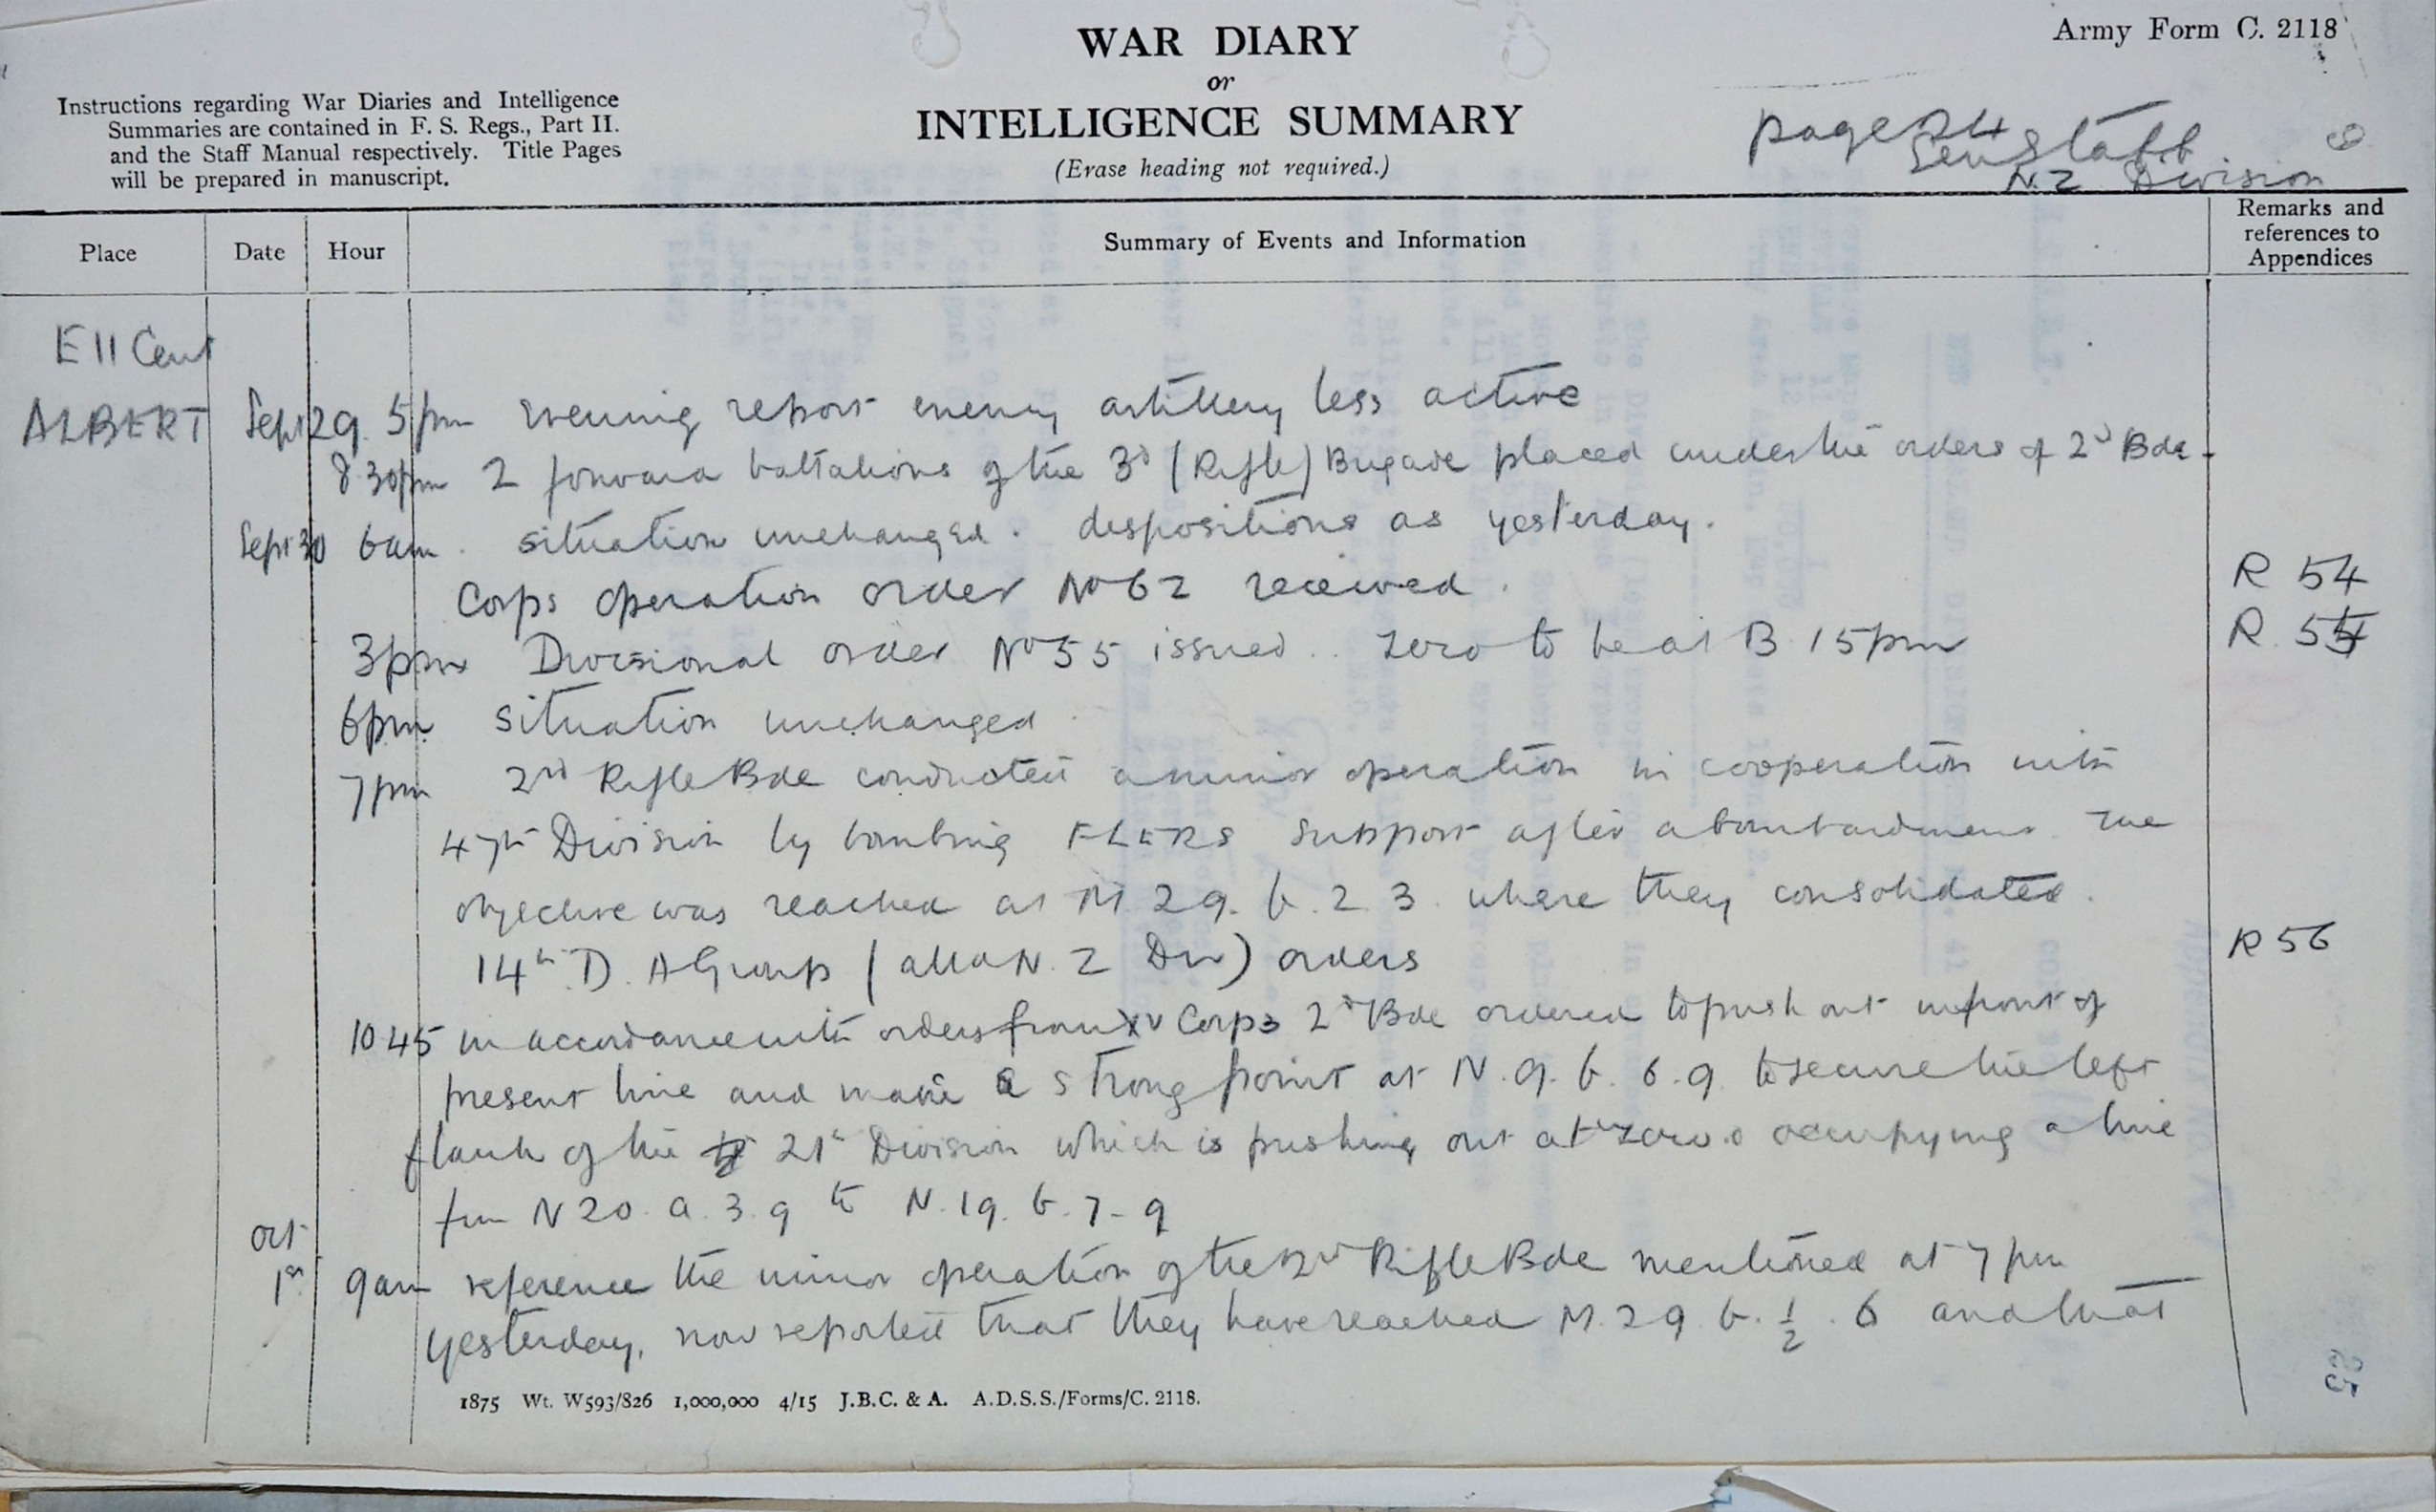 Army Form C. 2118
WAR DIARY
or
INTELLIGENCE SUMMARY
(Erase heading not required.)
Instructions regarding War Diaries and Intelligence
Summaries are contained in F. S. Regs., Part II.
and the Staff Manual respectively. Title Pages
will be prepared in manuscript.
page 24
Gen Staff
N.Z Division
Place Date Hour Summary of Events and Information Remarks and references to Appendices
E 11 Cent
ALBERT Sept 29. 5pm evening report enemy artillery less active
8.30pm 2 forward battalions of the 3d (Rifle) Brigade placed under the orders of 2d Bde.
Sept 30 6am. situation unchanged. dispositions as yesterday.
Corps operation order No 62 received. R 54
3pm Divisional order No 55 issued.. zero to be at 3.15pm R. 55
6pm situation unchanged.
7pm 2nd Rifle Bde conducted a minor operation in cooperation with
47th Division by bombing FLERS support after a bombardment The
objective was reached at M 29. b. 2. 3. where they consolidated.
14th D. A Group (alla N. Z Div) orders R 56
10.45 in accordance with orders from XV Corps 2d Bde ordered to push out in front of
present line and make a strong point at N. 9. b. 6. 9. to secure the left
flank of the 21st Division which is pushing out at zero. occupying a line
from N 20. a. 3. 9 to N. 19. b. 7 - 9
Oct
1st 9am reference the minor operation of the 2nd Rifle Bde mentioned at 7 pm
yesterday, now reported that they have reached M. 29. b. 1/2. 6 and that
1875 Wt. W593/826 1,000,000 4/15 J.B.C. & A. A.D.S.S./Forms/C. 2118.